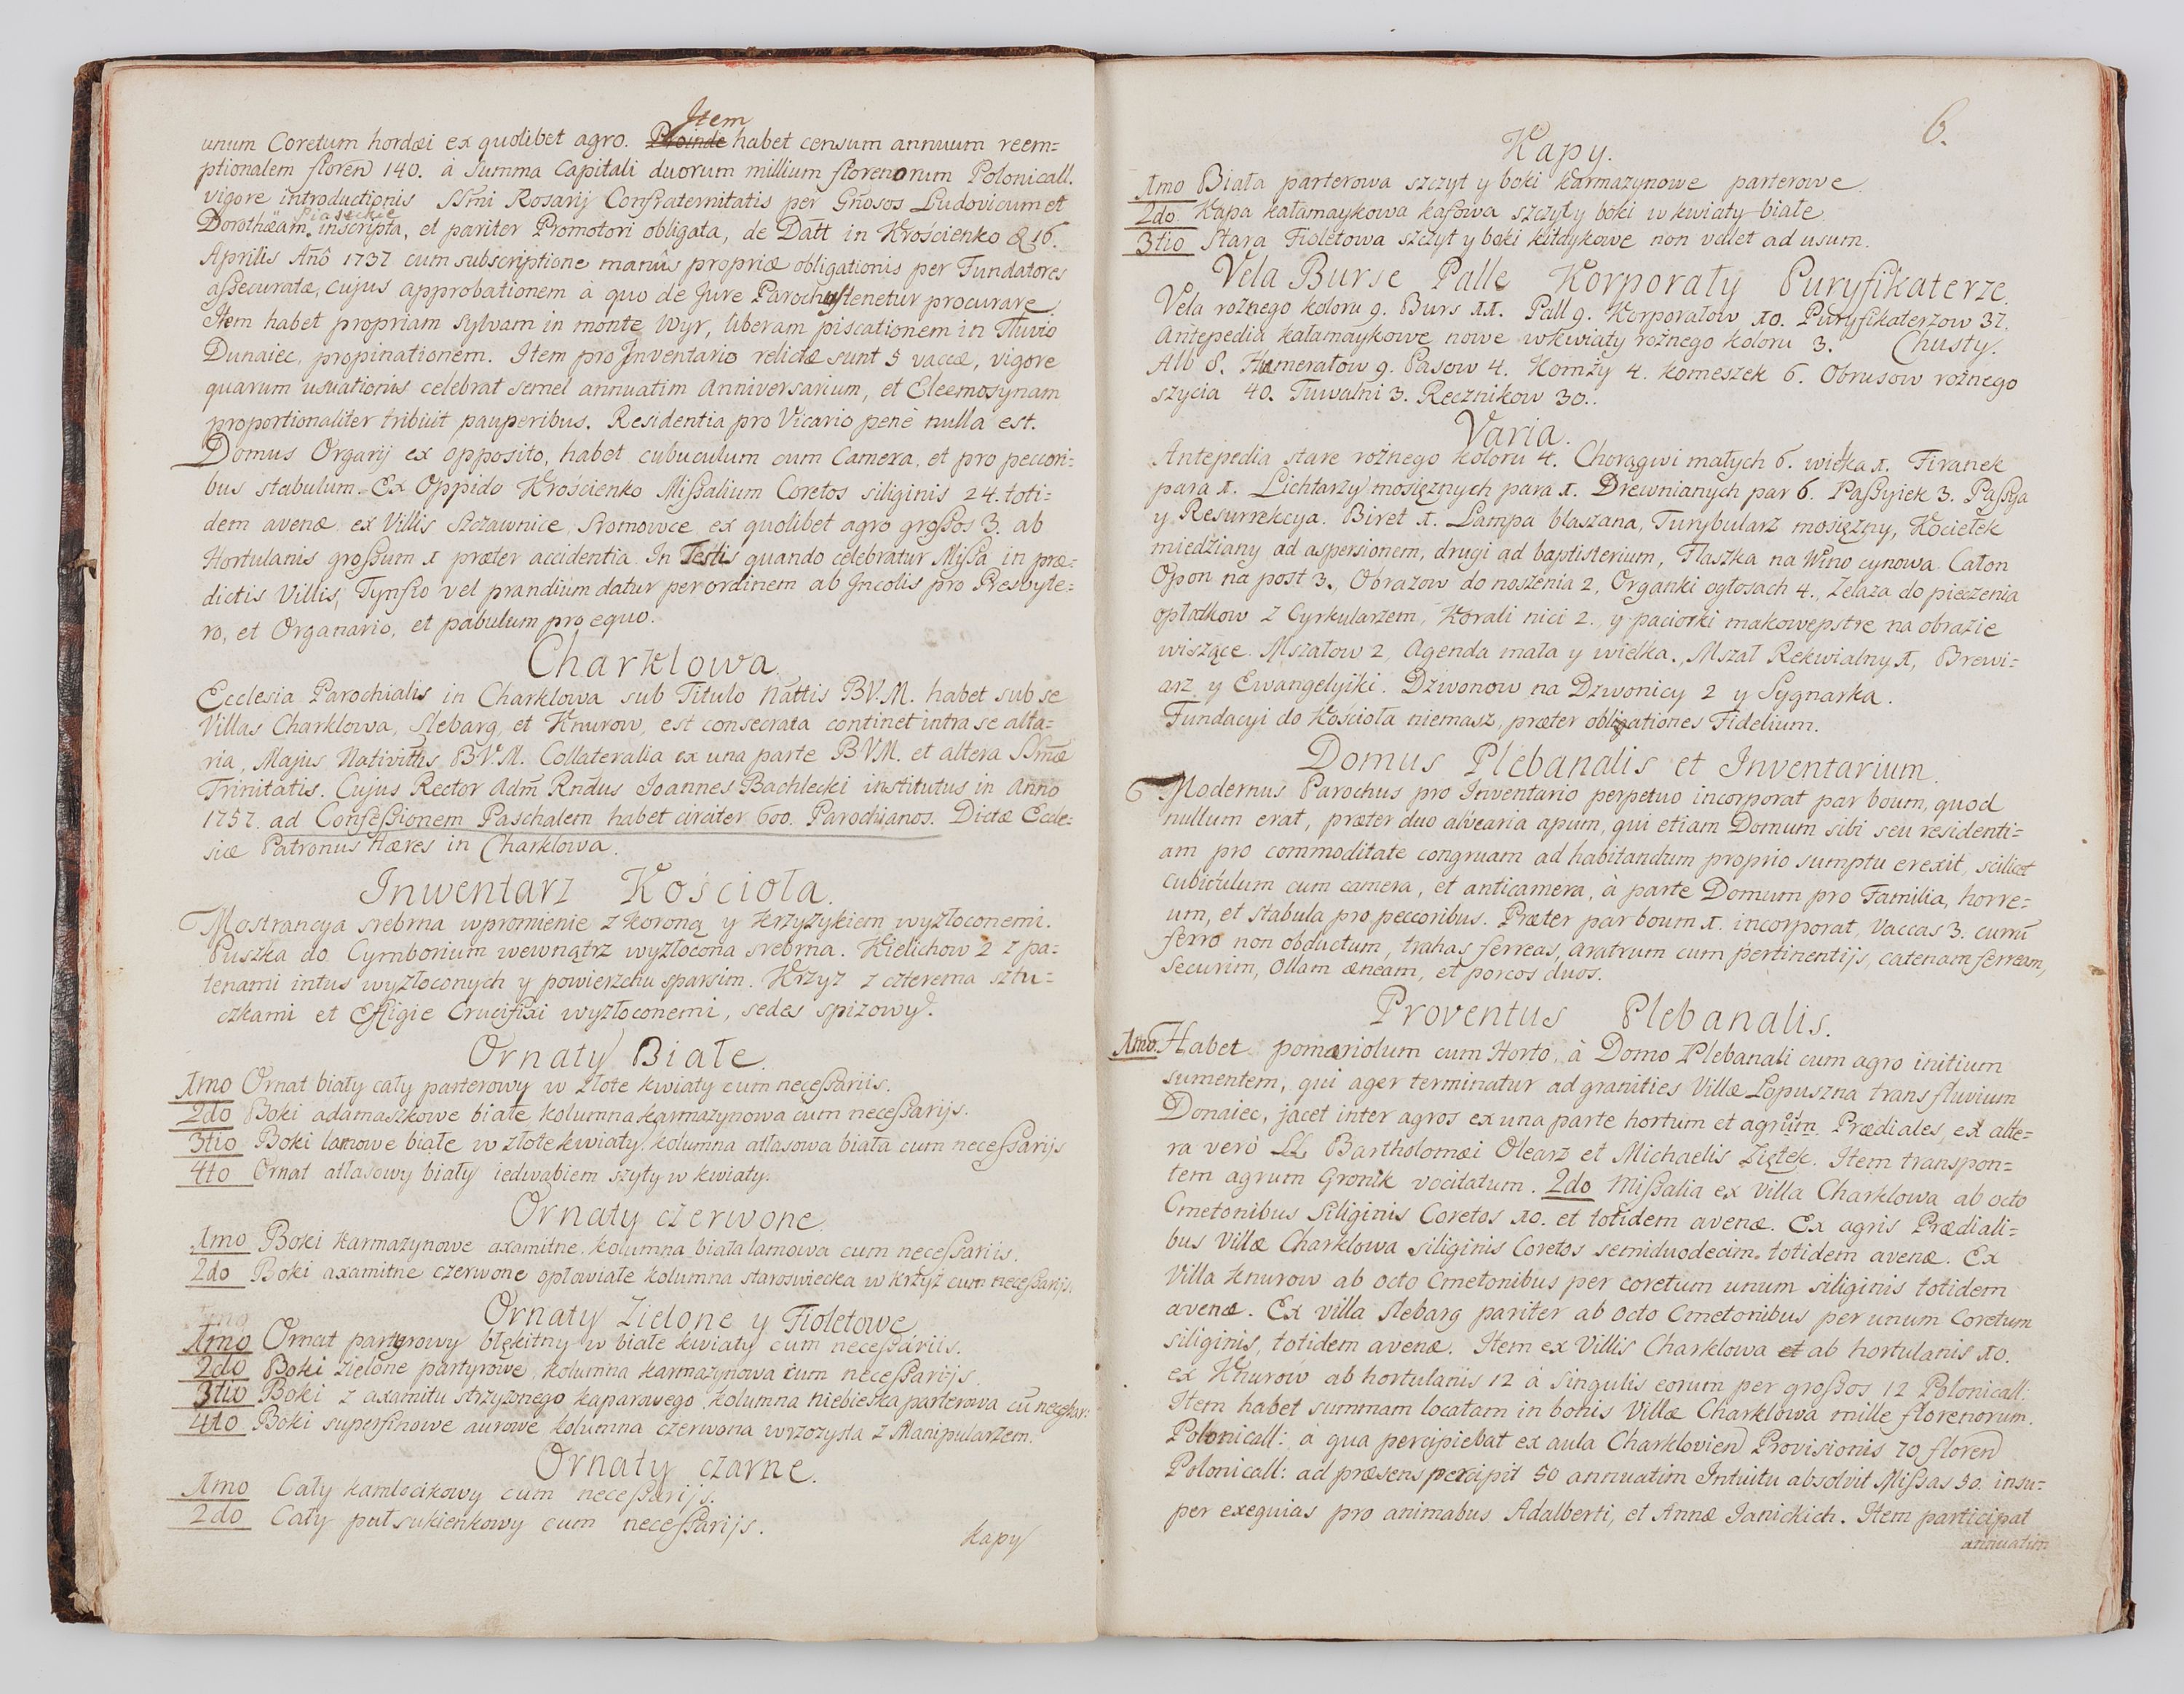 Item
unum Coretum hordæi ex quolibet agro. Proinde habet censum annuum reem=
ptionalem floren 140. à Summa Capitali duorum millium florenorum Polonicall.
vigore introductionis SSmi Rosarij Confraternitatis per Gnosos Ludovicum et
Piaseckie
Dorothæam inscripta, et pariter Promotori obligata, de Datt in Krościenko D 16.
Aprilis Anô 1737 cum subscriptione manûs propriæ obligationis per Fundatores
aßecuratæ, cujus approbationem à quo de Jure Parochus tenetur procurare.
Item habet propriam Sylvam in monte Wyr, liberam piscationem in Fluvio
Dunaiec, propinationem. Item pro Inventario relictæ sunt 5 vaccæ, vigore
quarum usuationis celebrat semel annuatim Anniversarium, et Eleemosynam
proportionaliter tribuit pauperibus. Residentia pro Vicario penè nulla est.
Domus Orgarij ex opposito, habet cubuculum cum Camera, et pro peccori=
bus stabulum. Ex Oppido Krościenko Mißalium Coretos siliginis 24. toti=
dem avenæ ex Villis Szczawnice, Sromowce ex quolibet agro großos 3. ab
Hortulanis großum 1 præter accidentia. In Festis quando celebratur Mißa in præ=
dictis Villis, Tynffo vel prandium datur per ordinem ab Incolis pro Presbyte=
ro, et Organario, et pabulum pro equo.
Charklowa
Ecclesia Parochialis in Charklowa sub Titulo Nattis B.V.M. habet sub se
Villas Charklowa, Slebarg, et Knurow, est consecrata continet intra se alta=
ria, Majus Nativittis B.V.M. Collateralia ex una parte B.V.M. et altera SSmæ
Trinitatis. Cujus Rector Adm Rndus Joannes Bachlecki institutus in Anno
1757. ad Confeßionem Paschalem habet circiter 600. Parochianos. Dictæ Eccle=
siæ Patronus Hæres in Charklowa.
Inwentarz Kościoła.
Mostrancya srebrna w promienie z koroną y krzyżykiem wyzłoconemi.
Puszka do Cymborium wewnątrz wyzłocona srebrna. Kielichow 2 z pa=
tenami intus wyzłoconych y powierzchu sparsim. Krzyż z czterema sztu=
czkami et Effigie Crucifixi wyzłoconemi, sedes spizowy.
Ornaty Białe.
1mo Ornat biały cały parterowy w złote kwiaty cum neceßariis.
2do Boki adamaszkowe białe kolumna karmazynowa cum neceßarijs.
3tio Boki lamowe białe w złote kwiaty, kolumna atlasowa biała cum neceßarijs
4to Ornat atlasowy biały iedwabiem szyty w kwiaty.
Ornaty czerwone.
1mo Boki karmazynowe axamitne, kolumna biała lamowa cum neceßariis.
2do Boki axamitne czerwone opłowiałe kolumna staroswiecka w krzyż cum neceßarijs.
Ornaty Zielone y Fioletowe
1mo Ornat partyrowy błękitny w białe kwiaty cum neceßariis.
2do Boki zielone partyrowe, kolumna karmazynowa cum neceßarijs.
3tio Boki z axamitu strzyżonego kaparowego, kolumna niebieska parterowa cū neceßar:
4to Boki superfinowe aurowe kolumna czerwona wzorzysta z Manipularzem.
Ornaty czarne.
1mo Cały kamlocikowy cum neceßarijs.
2do Cały pułsukienkowy cum neceßarijs.
kapy
6.
Kapy.
1mo Biała parterowa szczyt y boki karmazynowe parterowe.
2do Kapa kałamaykowa kafowa szczyt y boki w kwiaty białe.
3tio Stara Fioletowa szczyt y boki kitaykowe non valet ad usum.
Vela Burse Palle Korporały Puryfikaterze.
Vela rożnego koloru 9. Burs 11. Pall 9. Korporałow 10. Puryfikaterzow 37.
Antepedia kałamaykowe nowe w kwiaty rożnego koloru 3. Chusty.
Alb 8. Humerałow 9. Pasow 4. Komży 4. Komeszek 6. Obrusow rożnego
szycia 40. Tuwalni 3. Ręcznikow 30.
Varia.
Antepedia stare rożnego koloru 4. Chorągwi małych 6. wielka 1. Firanek
para 1. Lichtarzy mosiężnych para 1. Drewnianych par 6. Paßyiek 3. Paßya
y Resurrekcya. Biret 1. Lampa blaszana, Turybularz mosiężny, Kociełek
miedziany ad aspersionem, drugi ad baptisterium, Flaszka na Wino cynowa. Całon
Opon na post 3., Obrazow do noszenia 2, Organki ogłosach 4., Zelaza do pieczenia
opłatkow z Cyrkularzem, Korali nici 2., y paciorki makowe pstre na obrazie
wiszące. Mszałow 2, Agenda mała y wielka., Mszał Rekwialny 1, Brewi=
arz y Ewangelyiki. Dzwonow na Dzwonicy 2 y Sygnarka.
Fundacyi do Kościoła niemasz, præter obligationes Fidelium.
Domus Plebanalis et Inventarium.
6 Modernus Parochus pro Inventario perpetuo incorporat par boum, quod
nullum erat, præter duo alvearia apum, qui etiam Domum sibi seu residenti=
am pro commoditate congruam ad habitandum proprio sumptu erexit, scilicet
cubiculum cum camera, et anticamera, à parte Domum pro Familia, horre=
um, et stabula pro peccoribus. Præter par boum 1. incorporat, Vaccas 3. currū
ferro non obductum, trahas ferreas, aratrum cum pertinentijs, catenam ferream,
Securim, Ollam æneam, et porcos duos.
Proventus Plebanalis.
1mo Habet pomæriolum cum Horto, à Domo Plebanali cum agro initium
sumentem, qui ager terminatur ad granities Villæ Lopuszna trans fluvium
Donaiec, jacet inter agros ex una parte hortum et agrum Prædiales, ex alte=
ra verò LL Bartholomæi Olearz et Michaelis Ziętek. Item transpon=
tem agrum Gronik vocitatum. 2do Mißalia ex Villa Charklowa ab octo
Cmetonibus Siliginis Coretos 10. et totidem avenæ. Ex agris Prædiali=
bus Villæ Charklowa siliginis Coretos semiduodecim totidem avenæ. Ex
Villa Knurow ab octo Cmetonibus per coretum unum siliginis totidem
avenæ. Ex villa Slebarg pariter ab octo Cmetonibus per unum Coretum
siliginis, totidem avenæ. Item ex Villis Charklowa et ab hortulanis 10.
ex Knurow ab hortulanis 12 à singulis eorum per großos 12 Polonicall:
Item habet summam locatam in bonis Villæ Charklowa mille florenorum.
Polonicall:, à qua percipiebat ex aula Charklovien Provisionis 70 floren
Polonicall: ad præsens percipit 50 annuatim Intuitu absolvit Mißas 50. insu=
per exequias pro animabus Adalberti, et Annæ Janickich. Item participat
annuatim